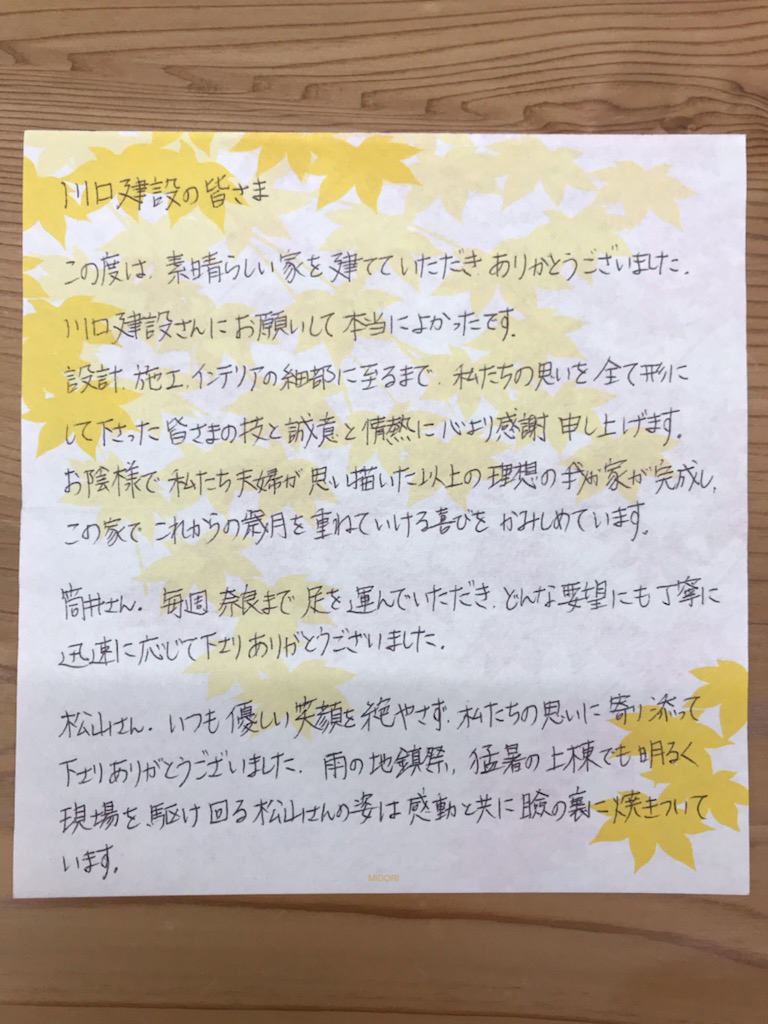 川口建設の皆さま
この度は、素晴らしい家を建てていただきありがとうございました。
川口建設さんにお願いして本当によかったです。
設計、施工、インテリアの細部に至るまで、私たちの思いを全て形に
して下さった皆さまの技と誠意と情熱に心より感謝申し上げます。
お陰様で私たち夫婦が思い描いた以上の理想の我が家が完成し、
この家でこれからの歳月を重ねていける喜びをかみしめています。
筒井さん、毎週奈良まで足を運んでいただき、どんな要望にも丁寧に
迅速に応じて下さりありがとうございました。
松山さん、いつも優しい笑顔を絶やさず、私たちの思いに寄り添って
下さりありがとうございました。雨の地鎮祭、猛暑の上棟でも明るく
現場を駆け回る松山さんの姿は感動と共に瞼の裏に焼きついて
います。
MIDORI